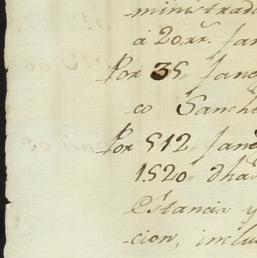 ministrado
a 20 rr. Jan
Por 35, Jane
co Sanche
Por 512, Jane
1520, dha
Estancia y
cion, inclu